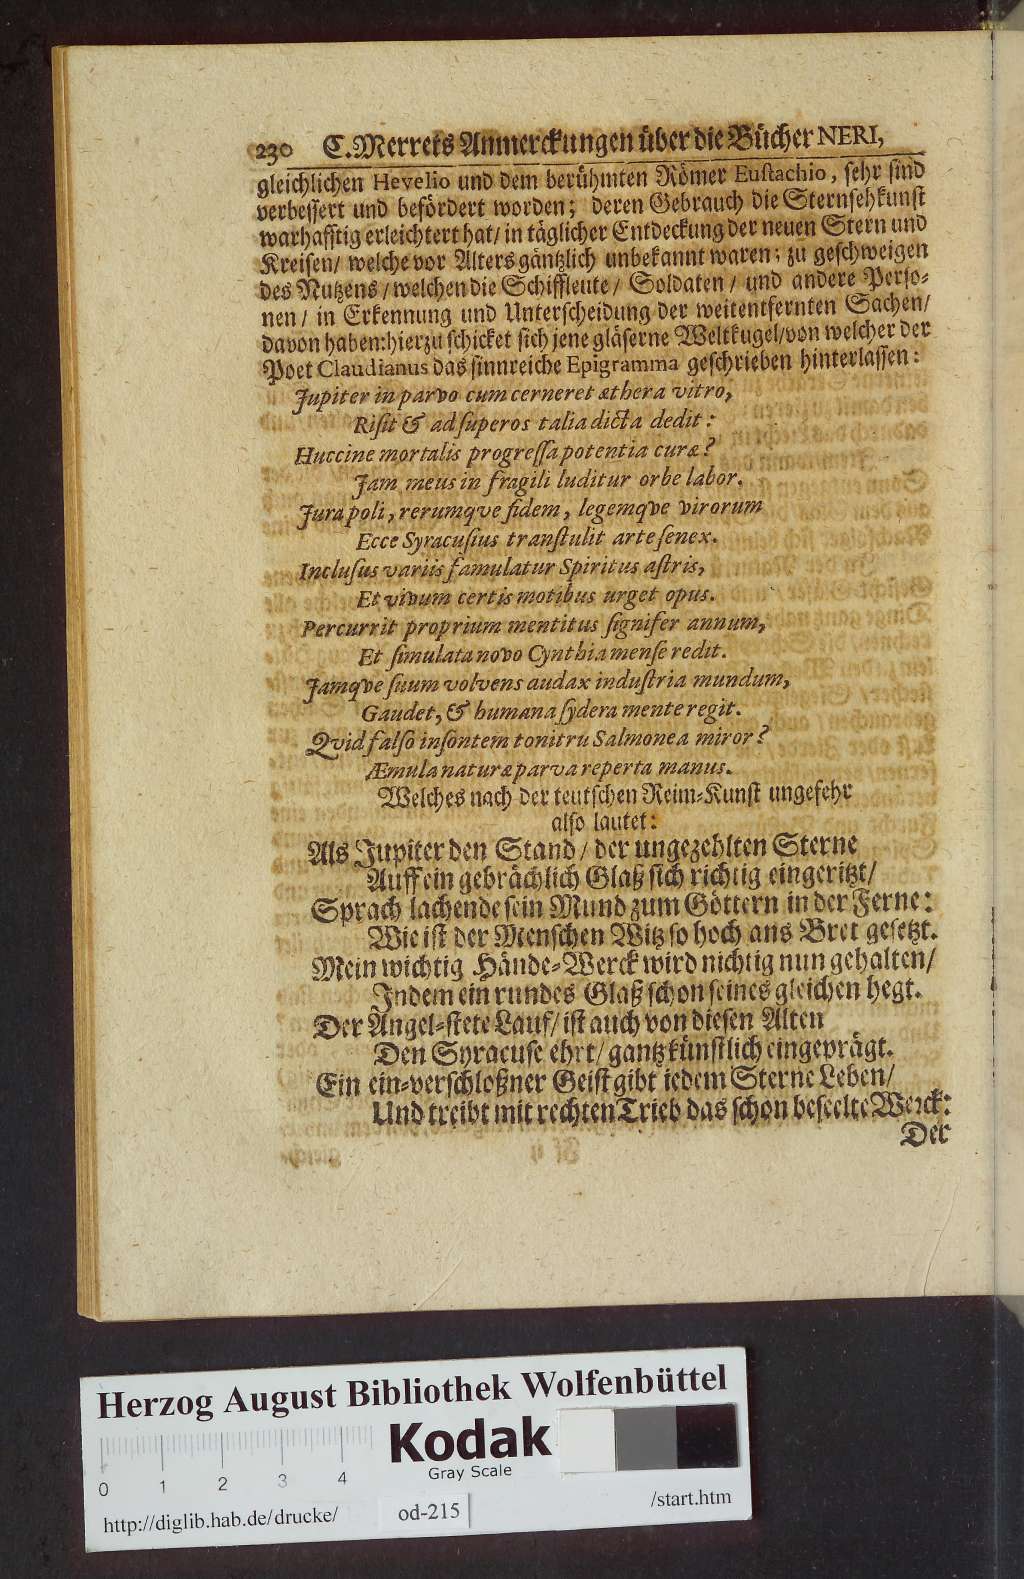 230 C. Merrets Anmerckungen über die Bücher NERI,
gleichlichen Hevelio und dem berühmten Römer Euſtachio, ſehr ſind
verbeſſert und befördert worden; deren Gebrauch die Sternſehkunſt
warhafftig erleichtert hat/ in täglicher Entdeckung der neuen Stern und
Kreiſen/ welche vor Alters gäntzlich unbekannt waren; zu geſchweigen
des Nutzens/ welchen die Schiffleute/ Soldaten/ und andere Perſo-
nen/ in Erkennung und Unterſcheidung der weitentfernten Sachen/
davon haben: hierzu ſchicket ſich jene gläſerne Weltkugel/ von welcher der
Poet Claudianus das ſinnreiche Epigramma geſchrieben hinterlaſſen:
Jupiter in parvo cum cerneret æthera vitro,
Riſit & ad ſuperos talia dicta dedit:
Huccine mortalis progreſſa potentia curæ?
Jam meus in fragili luditur orbe labor.
Jura poli, rerumqve fidem, legemqve virorum
Ecce Syracuſius tranſtulit arte ſenex.
Incluſus variis famulatur Spiritus aſtris,
Et vivum certis motibus urget opus.
Percurrit proprium mentitus ſignifer annum,
Et ſimulata novo Cynthia menſe redit.
Jamqve ſuum volvens audax induſtria mundum,
Gaudet, & humana ſydera mente regit.
Qvid falſo inſontem tonitru Salmonea miror?
Æmula naturæ parva reperta manus.
Welches nach der teutſchen Reim-Kunſt ungefehr
alſo lautet:
Als Jupiter den Stand/ der ungezehlten Sterne
Auff ein gebrächlich Glaß ſich richtig eingeritzt/
Sprach lachende ſein Mund zum Göttern in der Ferne:
Wie iſt der Menſchen Witz ſo hoch ans Bret geſetzt.
Mein wichtig Hände-Werck wird nichtig nun gehalten/
Indem ein rundes Glaß ſchon ſeines gleichen hegt.
Der Angel-ſtete Lauf/ iſt auch von dieſen Alten
Den Syracuſe ehrt/ gantz künſtlich eingeprägt.
Ein ein-verſchloßner Geiſt gibt iedem Sterne Leben/
Und treibt mit rechten Trieb das ſchon beſeelte Werck:
Der
Herzog August Bibliothek Wolfenbüttel
Kodak
Gray Scale
0 1 2 3 4
http://diglib.hab.de/drucke/ od-215 /start.htm